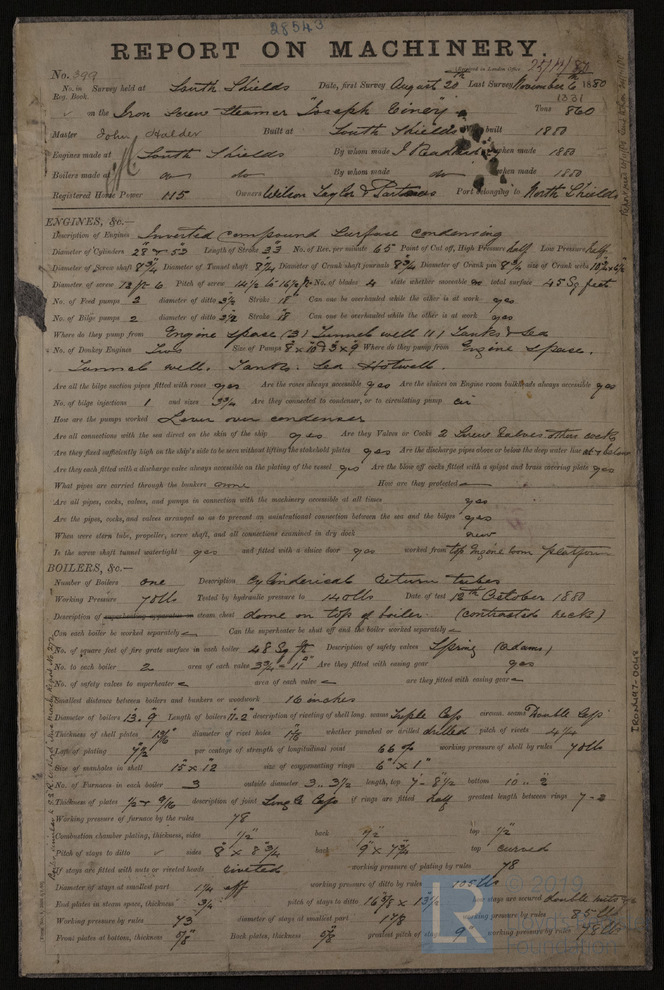 28543
REPORT ON MACHINERY.
No. 399 Received at London Office 25/11/80
No. in Survey held at South Shields Date, first Survey August 20th Last Survey November 6 1880
Reg. Book 1331
on the Iron Screw Steamer "Joseph Tons 860
Master John Halder Built at South Shields When built 1880
Engines made at South Shields By whom made J when made 1880
Boilers made at do do By whom made do when made 1880
Registered Horse Power 115 Owners Wilson Taylor & Partners Port belonging to North Shields
ENGINES, &c.—
Description of Engines Inverted compound Surface condensing
Diameter of Cylinders 28" & 52" Length of Stroke 33 No. of Rev. per minute 65 Point of Cut off, High Pressure half Low Pressure half
Diameter of Screw shaft 8 3/4 Diameter of Tunnel shaft 8 1/4 Diameter of Crank shaft journals 8 3/4 Diameter of Crank pin 8 3/4 size of Crank webs
Diameter of screw 12 ft 6 Pitch of screw 14 1/2 to 16 1/2 ft No. of blades 4 state whether moveable no total surface 45 Sq feet
No. of Feed pumps 2 diameter of ditto 3 1/2 Stroke 18" Can one be overhauled while the other is at work yes
No. of Bilge pumps 2 diameter of ditto 3 1/2 Stroke 18 Can one be overhauled while the other is at work yes
Where do they pump from Engine space (3) Tunnel well (1) Tanks & Sea
No. of Donkey Engines Two Size of Pumps Where do they pump from Engine Space.
Tunnel well. Tanks. Sea Hotwell.
Are all the bilge suction pipes fitted with roses yes Are the roses always accessible yes Are the sluices on Engine room bulkheads always accessible yes
No. of bilge injections 1 and sizes 3 3/4 Are they connected to condenser, or to circulating pump cir
How are the pumps worked Lever over condenser
Are all connections with the sea direct on the skin of the ship yes Are they Valves or Cocks 2 Screw Valves other cocks
Are they fixed sufficiently high on the ship's side to be seen without lifting the stokehold plates yes Are the discharge pipes above or below the deep water line at & below
Are they each fitted with a discharge valve always accessible on the plating of the vessel yes Are the blow off cocks fitted with a spigot and brass covering plate yes
What pipes are carried through the bunkers none How are they protected —
Are all pipes, cocks, valves, and pumps in connection with the machinery accessible at all times yes
Are the pipes, cocks, and valves arranged so as to prevent an unintentional connection between the sea and the bilges yes
When were stern tube, propeller, screw shaft, and all connections examined in dry dock new
Is the screw shaft tunnel watertight yes and fitted with a sluice door yes worked from top Engine room platform
BOILERS, &c.—
Number of Boilers one Description Cylinderical Return tubes
Working Pressure 70 lbs Tested by hydraulic pressure to 140 lbs Date of test 12th October 1880
Description of superheating apparatus or steam chest dome on top of boiler (contracted neck)
Can each boiler be worked separately — Can the superheater be shut off and the boiler worked separately —
No. of square feet of fire grate surface in each boiler 48 Sq ft Description of safety valves Spring (Adams)
No. to each boiler 2 area of each valve Are they fitted with easing gear yes
No. of safety valves to superheater — area of each valve — are they fitted with easing gear —
Smallest distance between boilers and bunkers or woodwork 16 inches
Diameter of boilers 13.9 Length of boilers 11.2" description of riveting of shell long. seams Triple Lap circum. seams Double Lap
Thickness of shell plates diameter of rivet holes whether punched or drilled drilled pitch of rivets 4 1/4
Lap of plating 7 1/2 per centage of strength of longitudinal joint 66 working pressure of shell by rules 70 lb
Size of manholes in shell 15" x 12 size of compensating rings 6" x 1"
No. of Furnaces in each boiler 3 outside diameter 3.. 3 1/2 length, top 7 - 8 1/2 bottom 10 .. 2
Thickness of plates 1/2 & 9/16 description of joint Single Lap if rings are fitted half greatest length between rings 7 - 2
Working pressure of furnace by the rules 78
Combustion chamber plating, thickness, sides 1/2" back 1/2 top 1/2
Pitch of stays to ditto sides 8" x 8 3/4 back 9" x 7 3/4 top curved
If stays are fitted with nuts or riveted heads riveted working pressure of plating by rules 78
Diameter of stays at smallest part 1 1/4 eff working pressure of ditto by rules 105 lbs
End plates in steam space, thickness 3/4 pitch of stays to ditto 16 5/8 x 13 1/2 how stays are secured double nuts
Working pressure by rules 73 diameter of stays at smallest part 1 7/8 working pressure by rules 85 lb
Front plates at bottom, thickness 5/8" Back plates, thickness 5/8 greatest pitch of stays 9 working pressure by rules 78 lb
IRON497-0048
© 2019
LR
Foundation